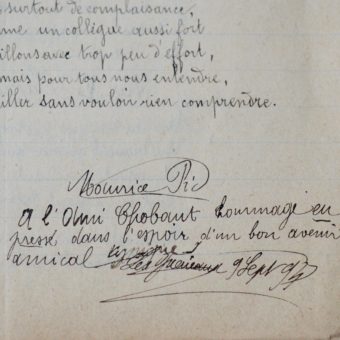 surtout de complaisance,
un collègue aussi fort
avec trop peu d'effort,
mais pour tous nous entendre,
sans vouloir rien comprendre.
Maurice Pic
A l'Ami Chobaut hommage em
pressé dans l'espoir d'un bon avenir
amical
9 Sept